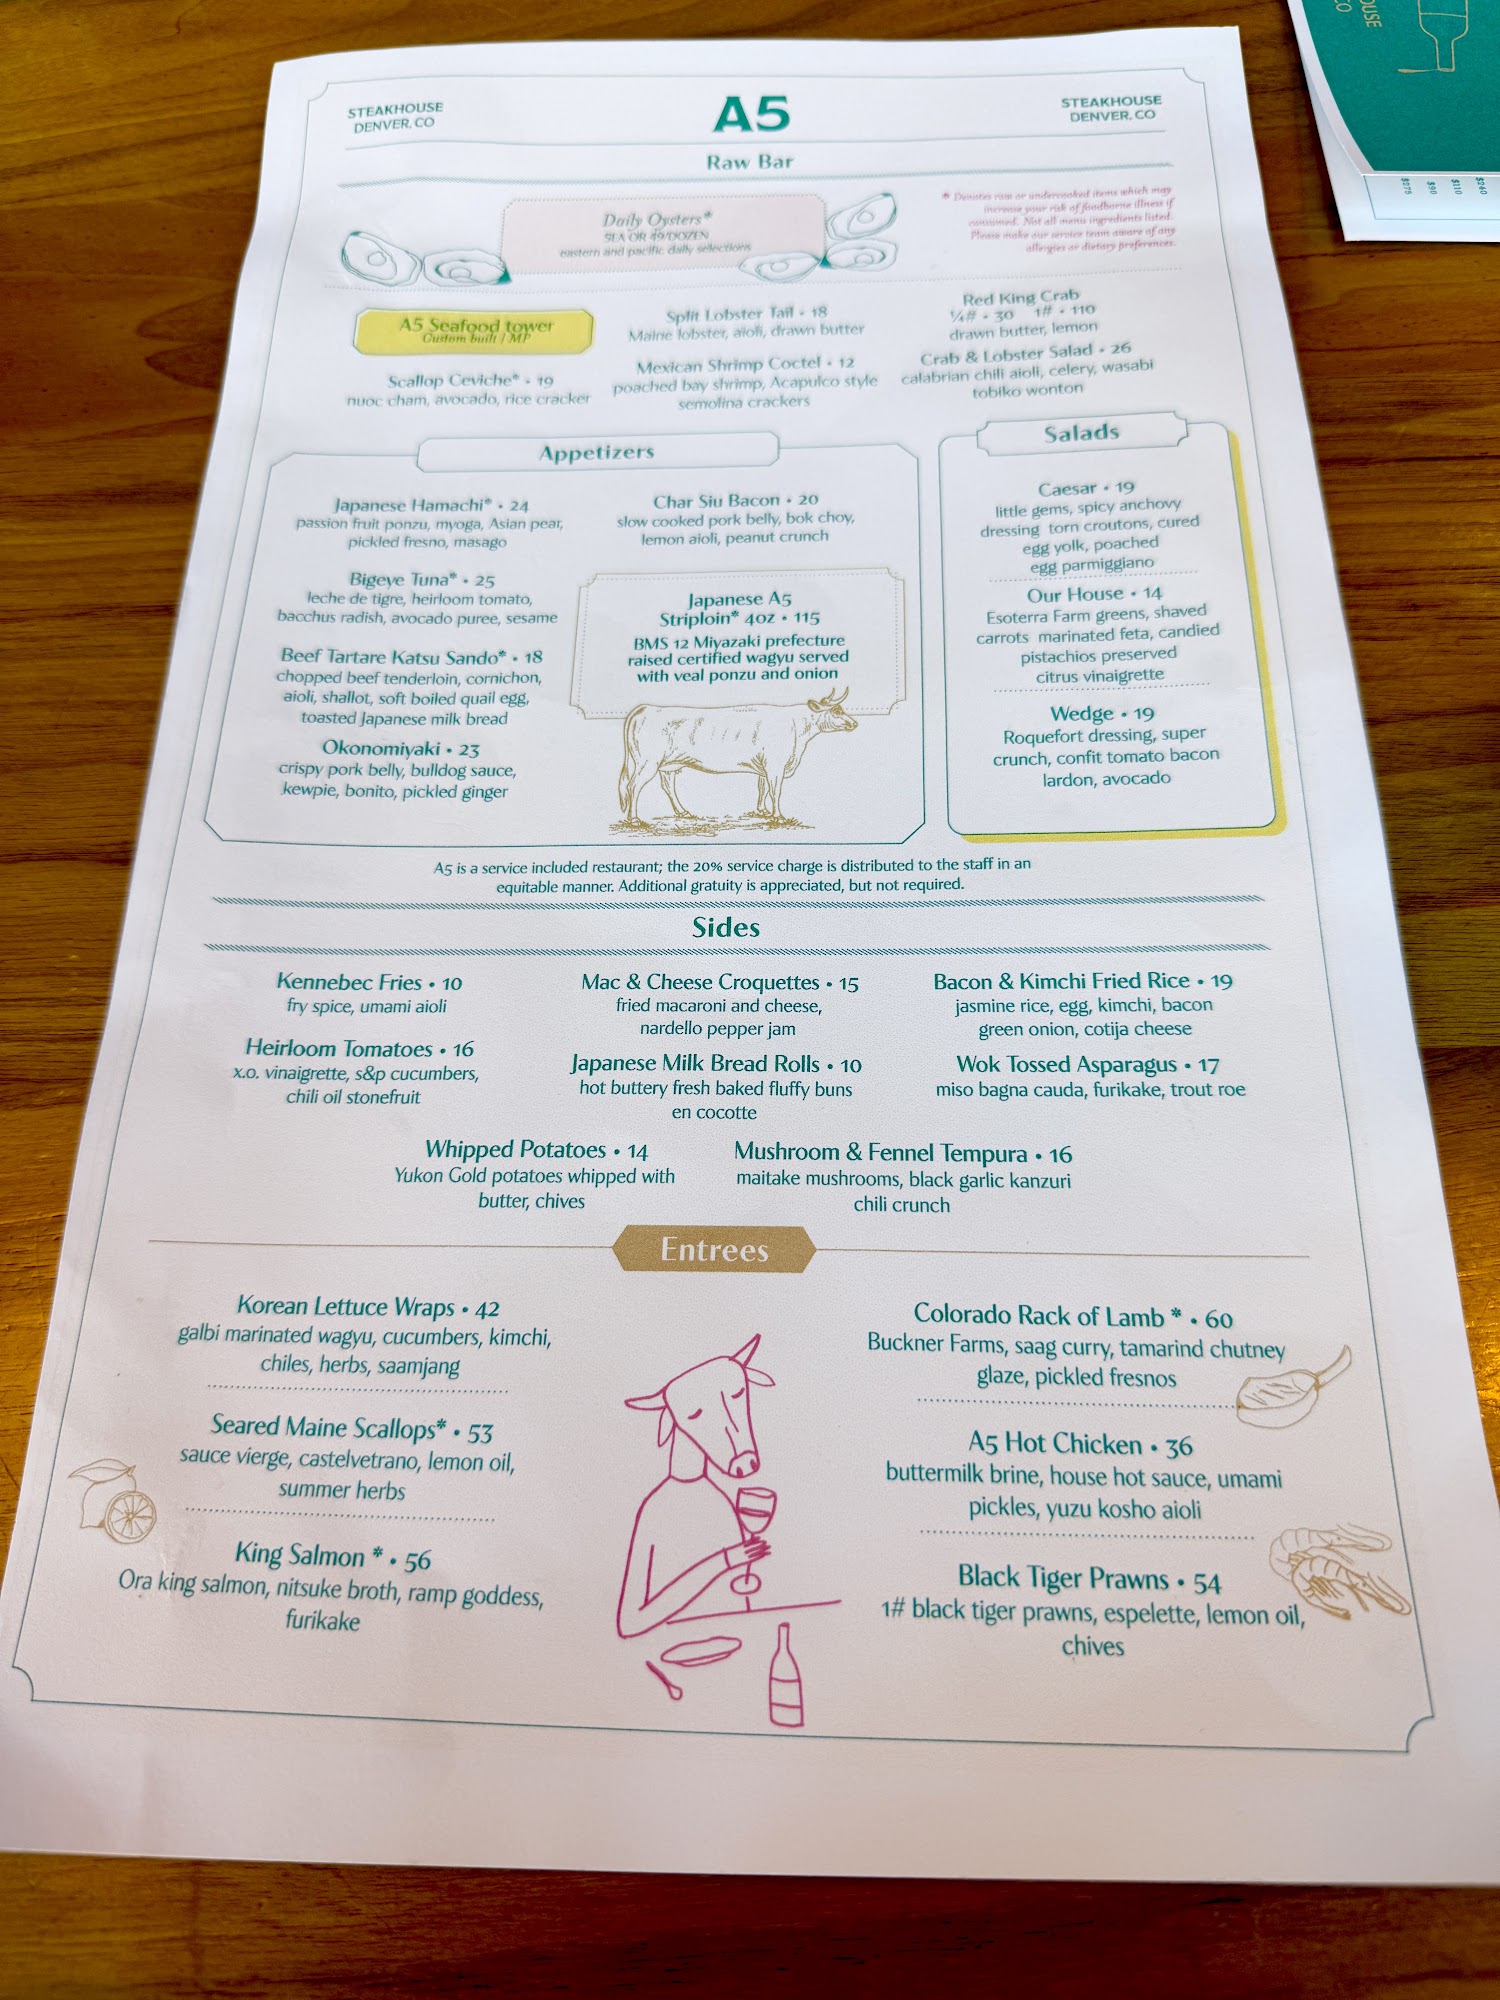 STEAKHOUSE
DENVER, CO
A5
STEAKHOUSE
DENVER, CO
Raw Bar
Daily Oysters*
5EA OR 49/DOZEN
eastern and pacific daily selections
* Denotes raw or undercooked items which may
increase your risk of foodborne illness if
consumed. Not all menu ingredients listed.
Please make our service team aware of any
allergies or dietary preferences.
A5 Seafood tower
Custom built / MP
Scallop Ceviche* • 19
nuoc cham, avocado, rice cracker
Split Lobster Tail • 18
Maine lobster, aioli, drawn butter
Mexican Shrimp Coctel • 12
poached bay shrimp, Acapulco style
semolina crackers
Red King Crab
¼# • 30 1# • 110
drawn butter, lemon
Crab & Lobster Salad • 26
calabrian chili aioli, celery, wasabi
tobiko wonton
Appetizers
Japanese Hamachi* • 24
passion fruit ponzu, myoga, Asian pear,
pickled fresno, masago
Bigeye Tuna* • 25
leche de tigre, heirloom tomato,
bacchus radish, avocado puree, sesame
Beef Tartare Katsu Sando* • 18
chopped beef tenderloin, cornichon,
aioli, shallot, soft boiled quail egg,
toasted Japanese milk bread
Okonomiyaki • 23
crispy pork belly, bulldog sauce,
kewpie, bonito, pickled ginger
Char Siu Bacon • 20
slow cooked pork belly, bok choy,
lemon aioli, peanut crunch
Japanese A5
Striploin* 4oz • 115
BMS 12 Miyazaki prefecture
raised certified wagyu served
with veal ponzu and onion
Salads
Caesar • 19
little gems, spicy anchovy
dressing torn croutons, cured
egg yolk, poached
egg parmiggiano
Our House • 14
Esoterra Farm greens, shaved
carrots marinated feta, candied
pistachios preserved
citrus vinaigrette
Wedge • 19
Roquefort dressing, super
crunch, confit tomato bacon
lardon, avocado
A5 is a service included restaurant; the 20% service charge is distributed to the staff in an
equitable manner. Additional gratuity is appreciated, but not required.
Sides
Kennebec Fries • 10
fry spice, umami aioli
Heirloom Tomatoes • 16
x.o. vinaigrette, s&p cucumbers,
chili oil stonefruit
Mac & Cheese Croquettes • 15
fried macaroni and cheese,
nardello pepper jam
Japanese Milk Bread Rolls • 10
hot buttery fresh baked fluffy buns
en cocotte
Bacon & Kimchi Fried Rice • 19
jasmine rice, egg, kimchi, bacon
green onion, cotija cheese
Wok Tossed Asparagus • 17
miso bagna cauda, furikake, trout roe
Whipped Potatoes • 14
Yukon Gold potatoes whipped with
butter, chives
Mushroom & Fennel Tempura • 16
maitake mushrooms, black garlic kanzuri
chili crunch
Entrees
Korean Lettuce Wraps • 42
galbi marinated wagyu, cucumbers, kimchi,
chiles, herbs, saamjang
Seared Maine Scallops* • 53
sauce vierge, castelvetrano, lemon oil,
summer herbs
King Salmon * • 56
Ora king salmon, nitsuke broth, ramp goddess,
furikake
Colorado Rack of Lamb * • 60
Buckner Farms, saag curry, tamarind chutney
glaze, pickled fresnos
A5 Hot Chicken • 36
buttermilk brine, house hot sauce, umami
pickles, yuzu kosho aioli
Black Tiger Prawns • 54
1# black tiger prawns, espelette, lemon oil,
chives
$275
$90
$110
$240